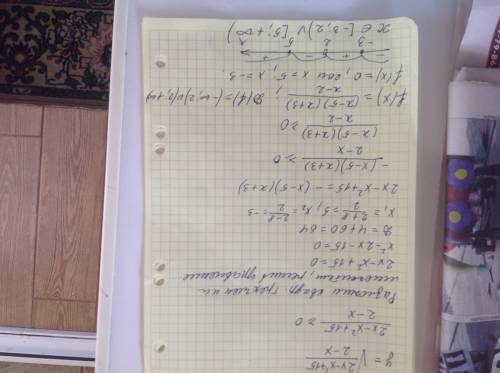 y = √((2x-x²+15)/(2-x))
(2x-x²+15)/(2-x) ≥ 0
Разложим квадр. трехчлен на
множители, решив уравнение
2x-x²+15=0
x²-2x-15=0
D=4+60=64
x₁=(2+8)/2=5; x₂=(2-8)/2=-3
2x-x²+15=-(x-5)(x+3)
-(x-5)(x+3)/(2-x) ≥ 0
(x-5)(x+3)/(x-2) ≥ 0
f(x)=(x-5)(x+3)/(x-2); D(f)=(-∞;2)∪(2;+∞)
f(x)=0, если x=5, x=-3.
- + - +
-3 2 5 x
x∈[-3;2)∪[5;+∞)